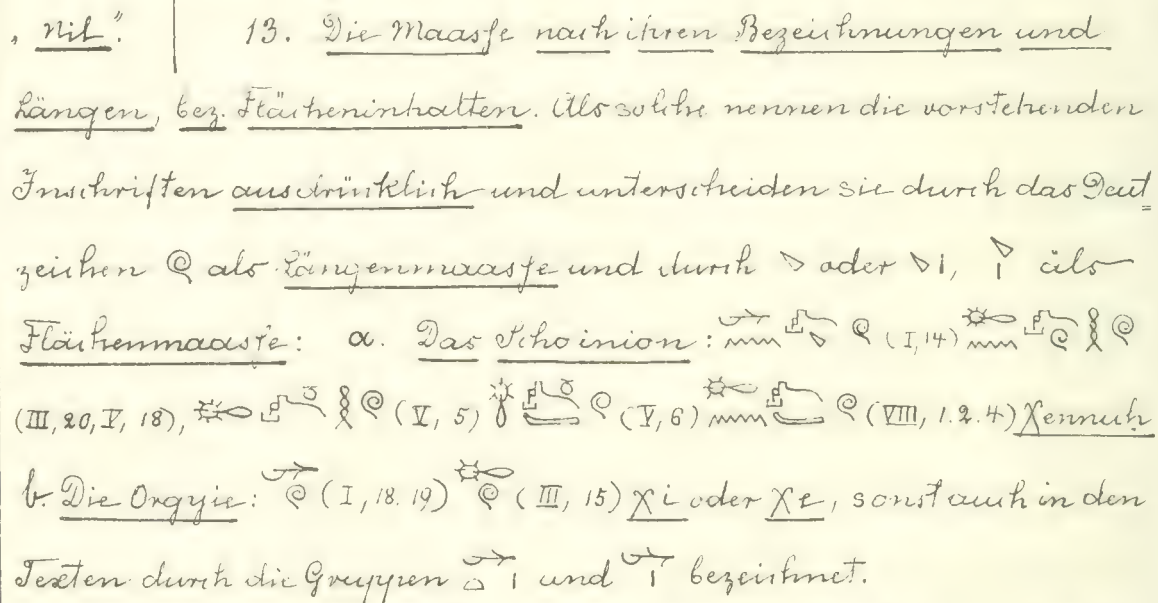 „Nil“. 13. Die Maasse nach ihren Bezeichnungen und
Längen, bez. Flächeninhalten. Als solche nennen die vorstehenden
Inschriften ausdrücklich und unterscheiden sie durch das Deut-
zeichen als Längenmaasse und durch oder , als
Flächenmaasse: a. Das Schoinion: (I,14)
(III, 20, V, 18), (V, 5) (V, 6) (VIII, 1. 2. 4) Χennuh
b. Die Orgyie: (I, 18. 19) (III, 15) Χi oder Χe, sonst auch in den
Texten durch die Gruppen und bezeichnet.